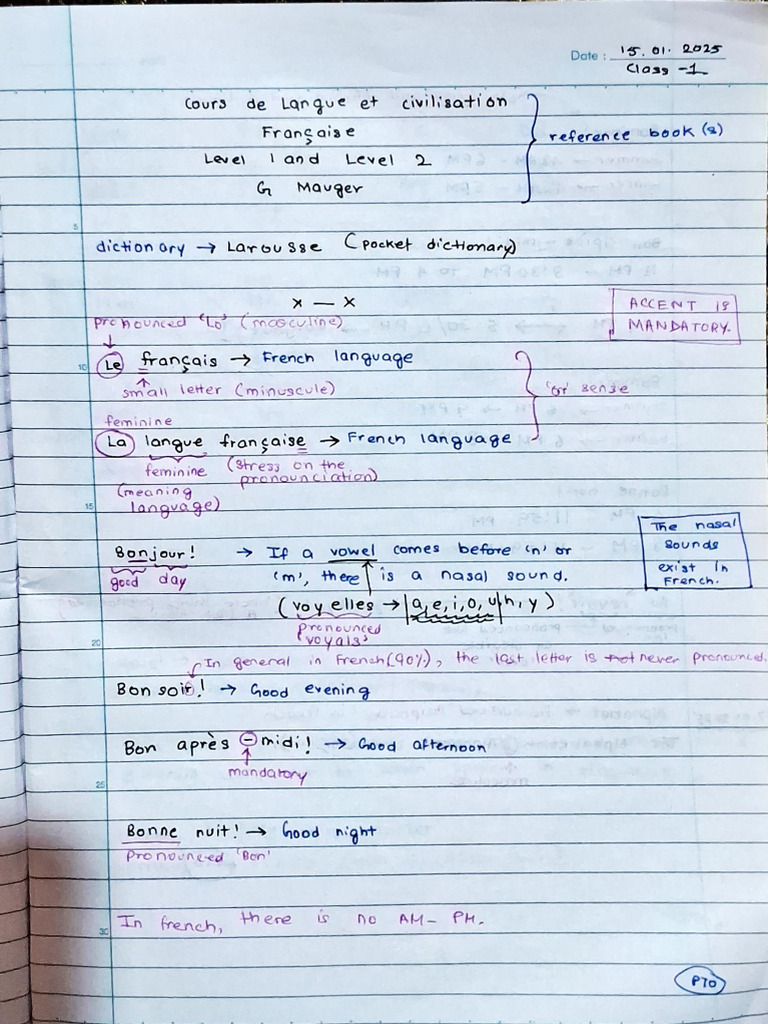 Date : 15.01.2025
Class -1
Cours de Langue et civilisation
Française
Level 1 and Level 2
G Mauger
reference book(s)
dictionary → Larousse (pocket dictionary)
x — x
ACCENT IS
MANDATORY.
pronounced 'Lo' (masculine)
Le français → French language
small letter (minuscule)
'or' sense
feminine
La langue française → French language
feminine (stress on the
pronounciation)
(meaning
language)
The nasal
sounds
exist in
French.
Bonjour! → If a vowel comes before 'n' or
good day 'm', there is a nasal sound.
(voyelles → a, e, i, o, u, h, y)
pronounced
'voyals'
In general in French (90%), the last letter is not never pronounced.
Bon soir! → Good evening
Bon après - midi! → Good afternoon
mandatory
Bonne nuit! → Good night
Pronounced 'Bon'
In french, there is no AM- PM.
PTO